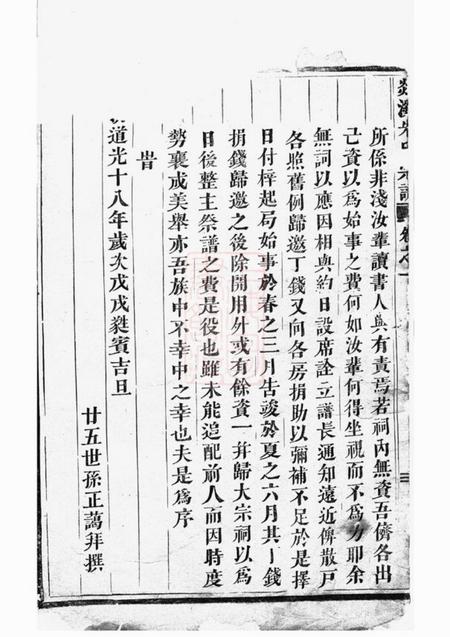 剡溪朱氏宗譜 卷之一
所係非淺汝輩讀書人與有責焉若祠內無資吾儕各出
己資以爲始事之費何如汝輩何得坐視而不爲力耶余
無詞以應因相與約日設席詮立譜長通知遠近俾散戶
各照舊例歸邀丁錢又向各房捐助以彌補不足於是擇
日付梓起局始事於春之三月告竣於夏之六月其丨錢
捐錢歸邀之後除開用外或有餘資一并歸大宗祠以爲
日後整主祭譜之費是役也雖未能追配前人而因時度
勢襄成美舉亦吾族中不幸中之幸也夫是爲序
旹
道光十八年歲次戊戌蕤賓吉旦
廿五世孫正藹拜撰